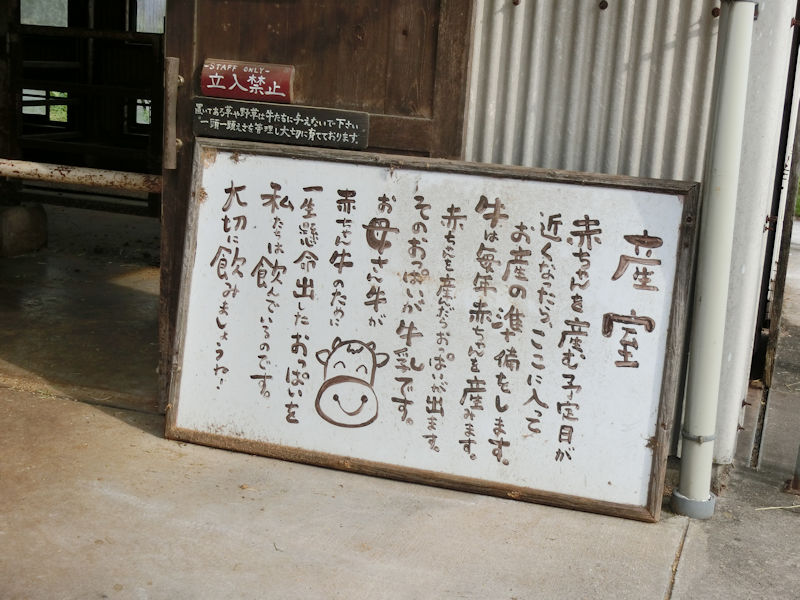 -STAFF ONLY-
立入禁止
置いてある草や野草は牛たちに与えないで下さい
一頭一頭えさを管理し大切に育てております。
産室
赤ちゃんを産む予定日が
近くなったら、ここに入って
お産の準備をします。
牛は毎年赤ちゃんを産みます。
赤ちゃんを産んだらおっぱいが出ます。
そのおっぱいが牛乳です。
お母さん牛が
赤ちゃん牛のために
一生懸命出したおっぱいを
私たちは飲んでいるのです。
大切に飲みましょうね!